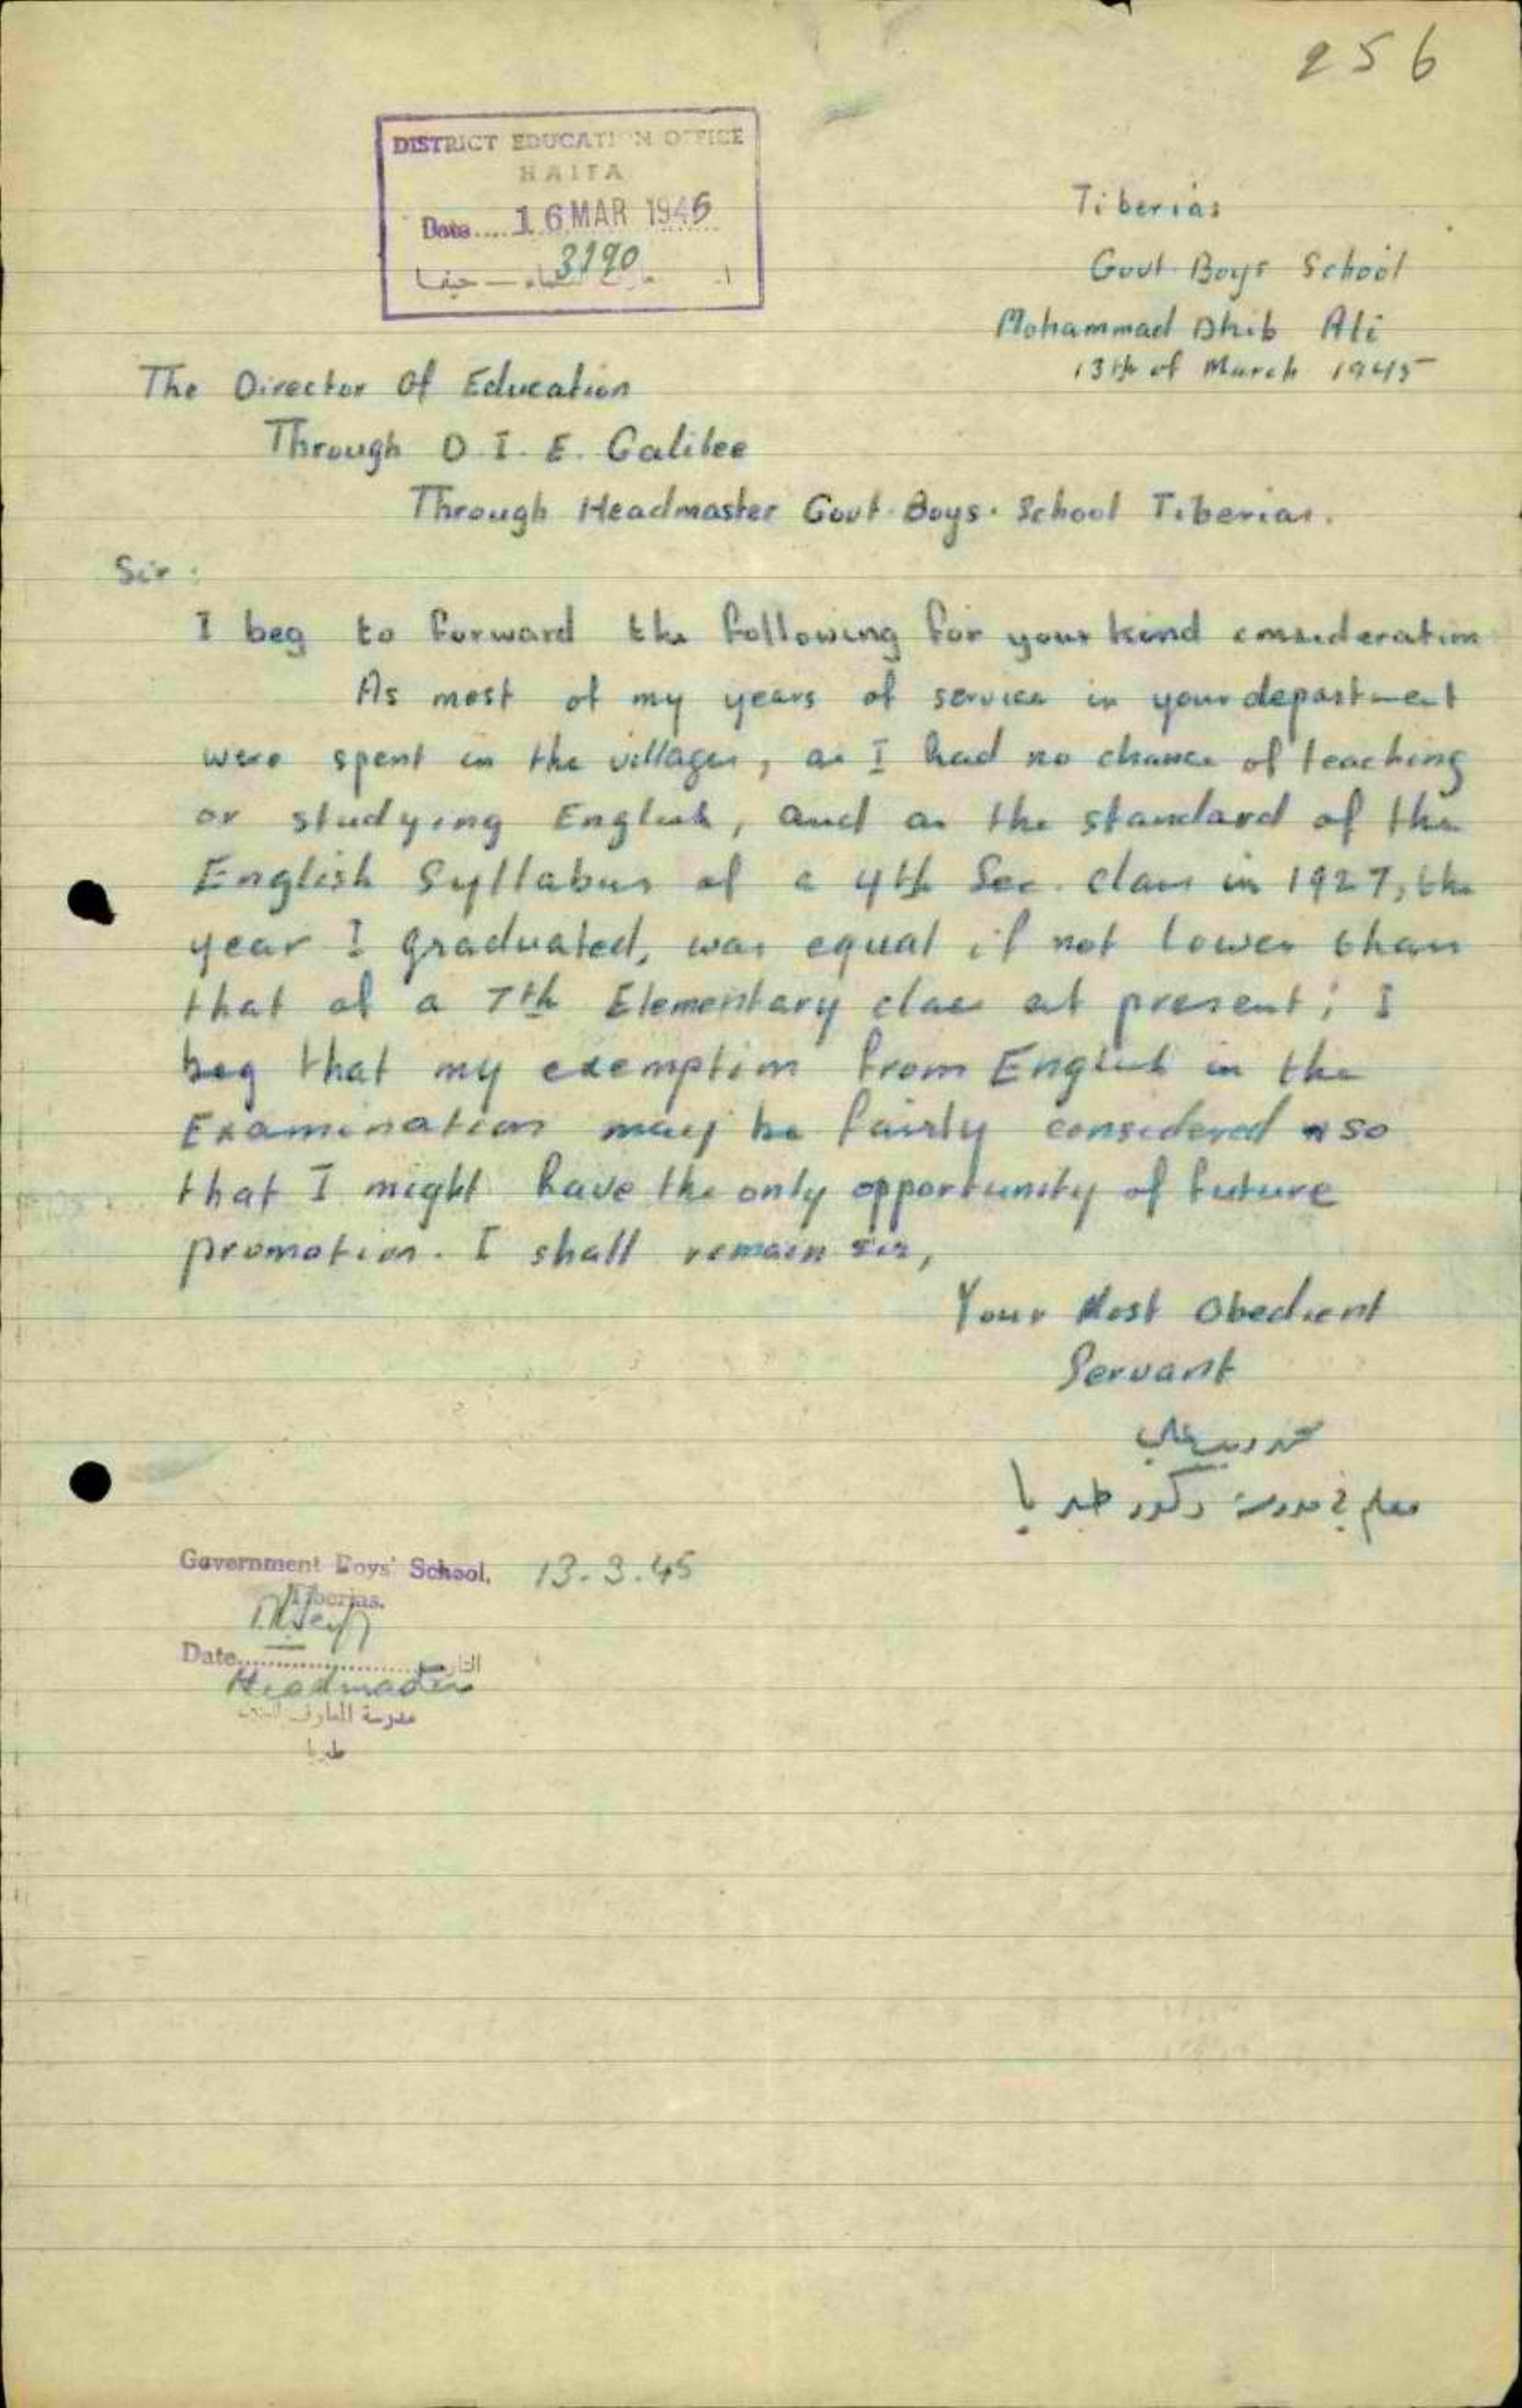 256
DISTRICT EDUCATION OFFICE
HAIFA
Date.... 16 MAR 1945
3190
حيفا
Tiberias
Govt. Boys School
Mohammad Dhib Ali
13th of March 1945
The Director Of Education
Through D. I. E. Galilee
Through Headmaster Govt. Boys. School Tiberias.
Sir :
I beg to forward the following for your kind consideration
As most of my years of service in your department
were spent in the villages, as I had no chance of teaching
or studying English, and as the standard of the
English Syllabus of a 4th Sec. class in 1927, the
year I graduated, was equal if not lower than
that of a 7th Elementary class at present; I
beg that my exemption from English in the
Examination may be fairly considered so
that I might have the only opportunity of future
promotion. I shall remain sir,
Your Most Obedient
Servant
محمد ديب علي
معلم في مدرسة ذكور طبريا
Government Boys' School, 13.3.45
Tiberias.
Date.................... التاريخ
Headmaster
مدرسة المعارف للبنين
طبريا